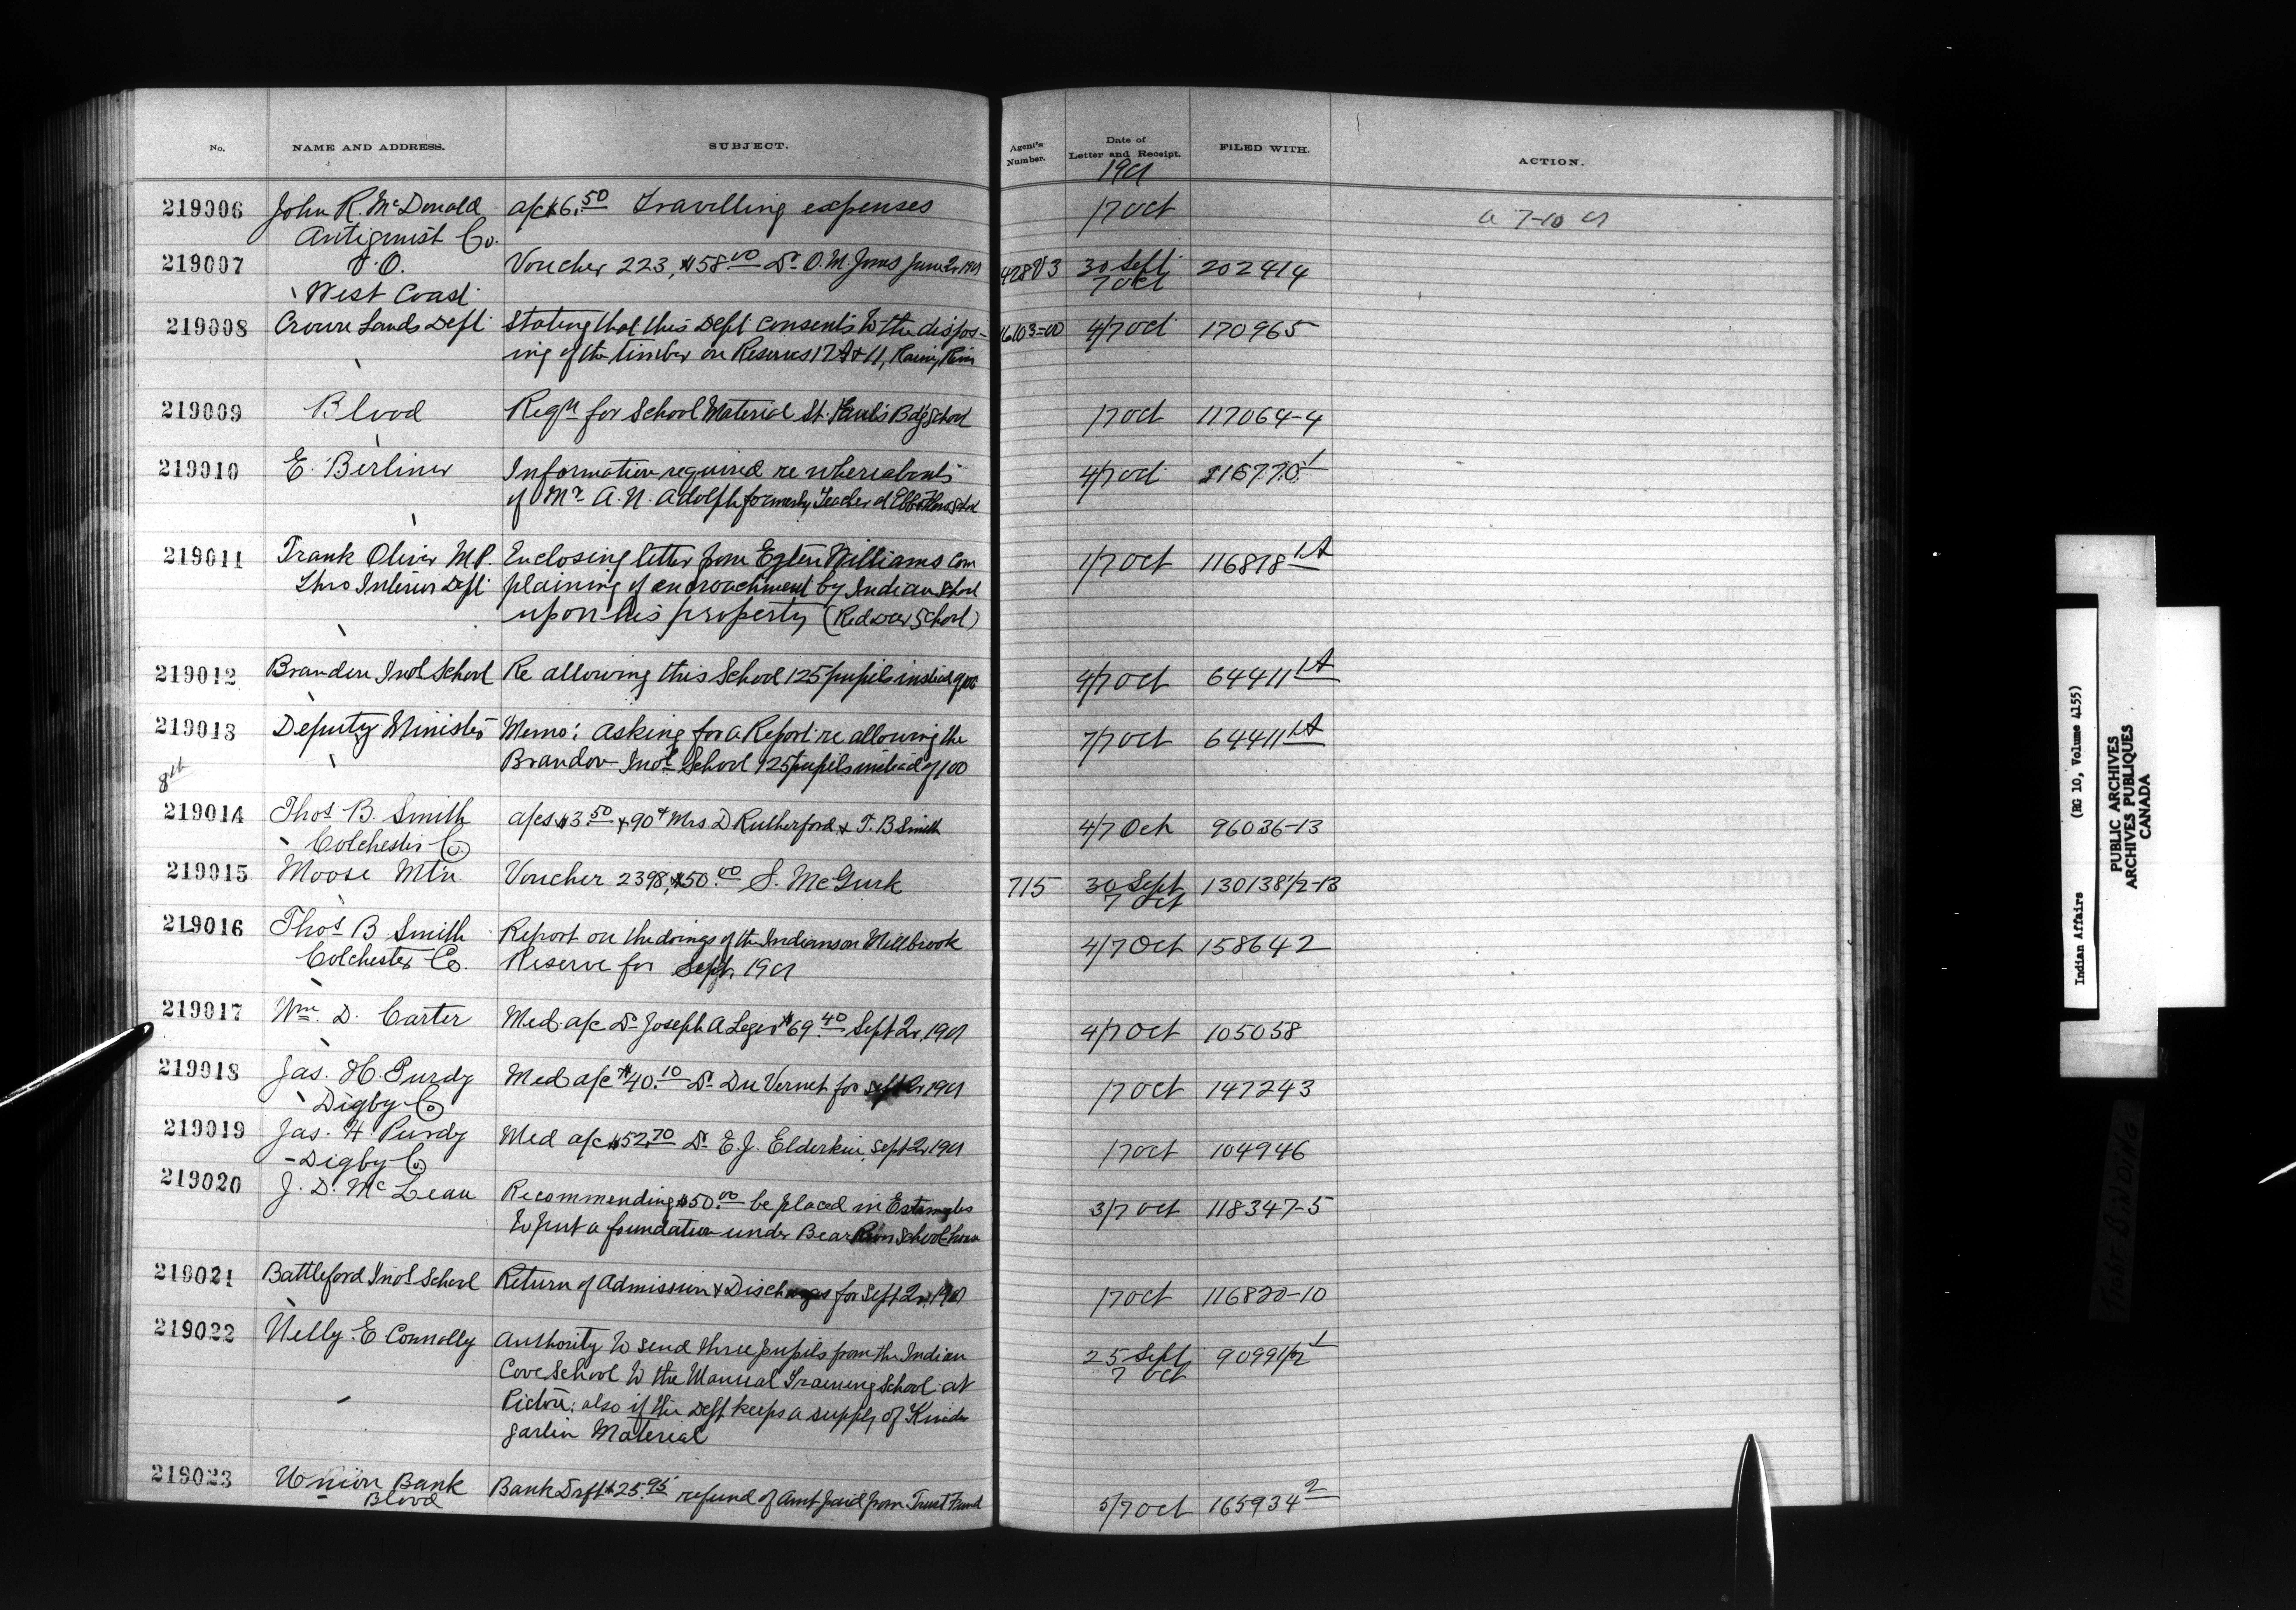 No. NAME AND ADDRESS. SUBJECT. Agent's Number. Date of Letter and Receipt. FILED WITH. ACTION.
1901
219006 John R. McDonald a/c $6.50 Travelling expenses 17 Oct a 7-10 01
Antigonish Co.
219007 V.O. Voucher 223, $58.00 Dr O.M. Jones June Qr 1901 428V3 30 Sept 202414
West Coast 7 Oct
219008 Crown Lands Dept Stating that this Dept consents to the dispos- 4/7 Oct 170965
ing of the timber on Reserves 17A & 11, Rainy River
219009 Blood Reqn for School Material St. Paul's Bdg School 17 Oct 117064-4
219010 E. Berliner Information required re whereabouts 4/7 Oct 116770 1
of Mr A.N. Adolph formerly Teacher at
219011 Frank Oliver M.P. Enclosing letter from Williams com 1/7 Oct 116818 1A
Thro Interior Dept plaining of encroachment by Indian School
upon his property (Red Deer School)
219012 Brandon Indl School Re allowing this School 125 pupils instead of 100 4/7 Oct 64411 1A
219013 Deputy Minister Memo: asking for a Report re allowing the 7/7 Oct 64411 1A
Brandon Indl School 125 pupils instead of 100
8th
219014 Thos B. Smith a/cs $3.50 & 90¢ Mrs D Rutherford & T. B Smith 4/7 Oct 96036-13
Colchester Co.
219015 Moose Mtn Voucher 2398, $50.00 S. McGurk 715 30 Sept 130138 1/2-13
7 Oct
219016 Thos B Smith Report on the doings of the Indians on Millbrook 4/7 Oct 158642
Colchester Co. Reserve for Sept. 1901
219017 Wm. D. Carter Med. a/c Dr Joseph A Leger $69.40 Sept Qr, 1901 4/7 Oct 105058
219018 Jas. H. Purdy Med a/c $40.10 Dr Du Vernet for Sept Qr 1901 17 Oct 147243
Digby Co
219019 Jas. H. Purdy Med a/c $52.70 Dr E.J. Elderkin, Sept Qr 1901 17 Oct 104946
Digby Co.
219020 J. D. McLean Recommending $50.00 be placed in Estimates 3/7 Oct 118347-5
to put a foundation under Bear River School-house
219021 Battleford Indl School Return of Admission & Discharges for Sept Qr, 1901 17 Oct 116820-10
219022 Nelly E Connolly Authority to send three pupils from the Indian 25 Sept 90991 1/2 1
Cove School to the Manual Training School at 7 Oct
Pictou; also if the Dept keeps a supply of Kinder
garten Material
219023 Union Bank Bank Drft $25.95 refund of Amt paid from Trust Fund 5/7 Oct 165934 2
Blood
Indian Affairs (RG 10, Volume 4155)
PUBLIC ARCHIVES
ARCHIVES PUBLIQUES
CANADA
TIGHT BINDING